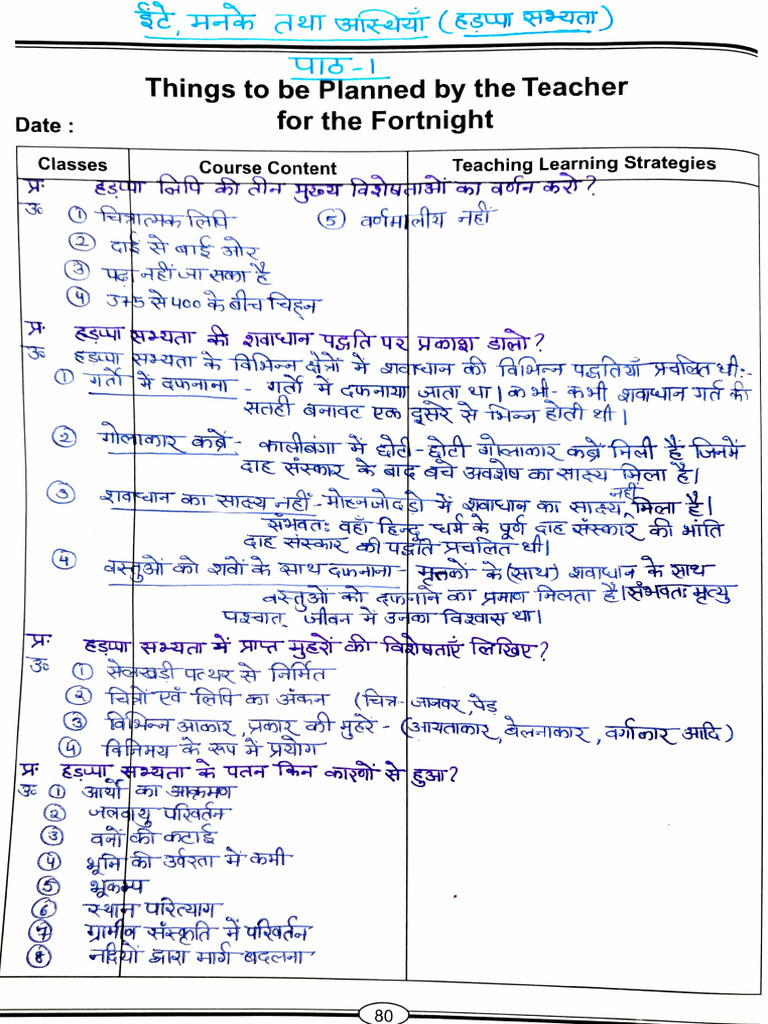 ईंटे, मनके तथा अस्थियाँ (हड़प्पा सभ्यता)
पाठ-1
Things to be Planned by the Teacher
for the Fortnight
Date :
Classes Course Content Teaching Learning Strategies
प्र: हड़प्पा लिपि की तीन मुख्य विशेषताओं का वर्णन करो?
उ ① चित्रात्मक लिपि ⑤ वर्णमालीय नहीं
② दाईं से बाईं ओर
③ पढ़ा नहीं जा सका है
④ 375 से 400 के बीच चिह्न
प्र: हड़प्पा सभ्यता की शवाधान पद्धति पर प्रकाश डालो?
उ हड़प्पा सभ्यता के विभिन्न क्षेत्रों में शवाधान की विभिन्न पद्धतियाँ प्रचलित थी:-
① गर्तो में दफनाना - गर्तो में दफनाया जाता था। कभी-कभी शवाधान गर्त की
सतही बनावट एक दूसरे से भिन्न होती थी।
② गोलाकार कब्रें - कालीबंगा में छोटी-छोटी गोलाकार कब्रें मिली हैं जिनमें
दाह संस्कार के बाद बचे अवशेष का साक्ष्य मिला है।
③ शवाधान का साक्ष्य नहीं - मोहनजोदड़ो में शवाधान का साक्ष्य नहीं मिला है।
संभवत: वहाँ हिन्दू धर्म के पूर्ण दाह संस्कार की भांति
दाह संस्कार की पद्धति प्रचलित थी।
④ वस्तुओं को शवों के साथ दफनाना - मृतकों के (साथ) शवाधान के साथ
वस्तुओं को दफनाने का प्रमाण मिलता है। संभवत: मृत्यु
पश्चात् जीवन में उनका विश्वास था।
प्र: हड़प्पा सभ्यता में प्राप्त मुहरों की विशेषताएँ लिखिए?
उ ① सेलखड़ी पत्थर से निर्मित
② चित्रों एवं लिपि का अंकन (चित्र-जानवर, पेड़
③ विभिन्न आकार, प्रकार की मुहरें - (आयताकार, बेलनाकार, वर्गाकार आदि)
④ विनिमय के रूप में प्रयोग
प्र: हड़प्पा सभ्यता के पतन किन कारणों से हुआ?
उ ① आर्यों का आक्रमण
② जलवायु परिवर्तन
③ वनों की कटाई
④ भूमि की उर्वरता में कमी
⑤ भूकम्प
⑥ स्थान परित्याग
⑦ ग्रामीण संस्कृति में परिवर्तन
⑧ नदियों द्वारा मार्ग बदलना
80